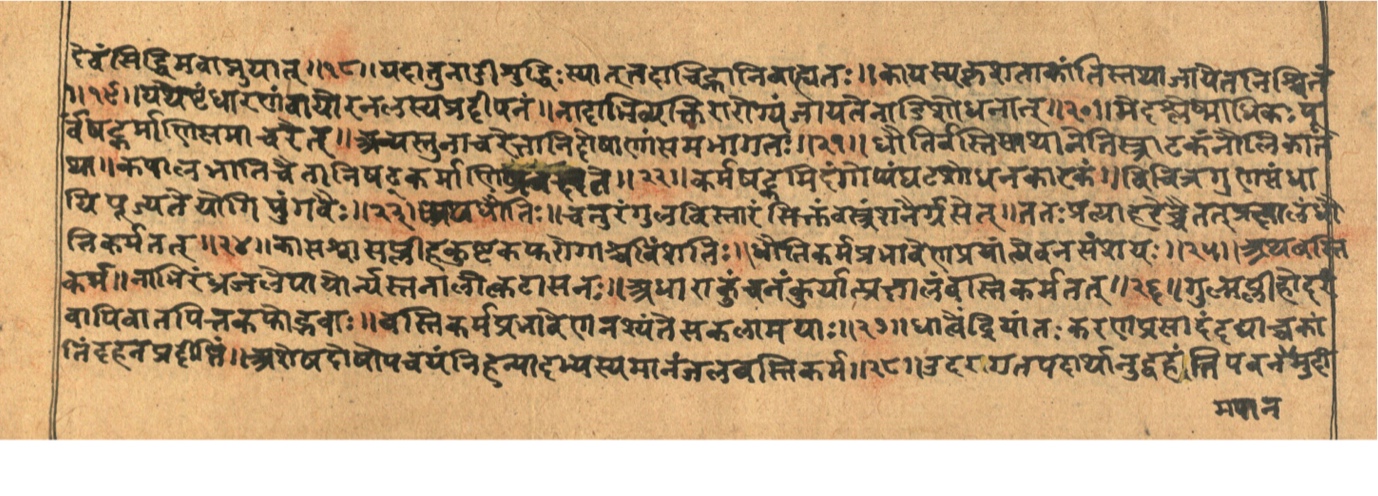 देवं सिद्धिमवाप्नुयात् ॥१८॥ यदा तु नाडीशुद्धिः स्यात् तदा चिह्नानि बाह्यतः ॥ कायस्य कृशता कांतिस्तथा जायेत निश्चितं
॥१९॥ यथेष्टं धारणं वायोरनलस्य प्रदीपनं ॥ नादाभिव्यक्तिरारोग्यं जायते नाडिशोधनात् ॥२०॥ मेदश्लेष्माधिकः पू
र्वं षट्कर्माणि समाचरेत् ॥ अन्यस्तु नाचरेत्तानि दोषाणां समभागतः ॥२१॥ धौतिर्वस्तिस्तथा नेतिस्त्राटकं नौलिकात
था ॥ कपालभातिश्चैतानि षट्कर्माणि प्रचक्षते ॥२२॥ कर्मषट्कमिदं गोप्यं घटशोधनकारकं ॥ विचित्रगुणसंधा
यि पूज्यते योगिपुंगवैः ॥२३॥ अथ धौतिः ॥ चतुरंगुलविस्तारं सिक्तं वस्त्रं शनैर्ग्रसेत् ॥ ततः प्रत्याहरेच्चैतत् प्रक्षालं धौ
तिकर्म तत् ॥२४॥ कासश्वासप्लीहकुष्टकफरोगाश्च विंशतिः ॥ धौतिकर्मप्रभावेण प्रयांत्येव न संशयः ॥२५॥ अथ वस्ति
कर्म ॥ नाभिरंध्रजले पायोर्न्यस्तनालोत्कटासनः ॥ अधाराकुंचनं कुर्यात्प्रक्षालं वस्तिकर्म तत् ॥२६॥ गुल्मप्लीहोदरं
वापि वातपित्तकफोद्भवाः ॥ वस्तिकर्मप्रभावेण नश्यंते सकलामयाः ॥२७॥ धात्वेंद्रियांतःकरणप्रसादं दद्याच्च कां
तिं दहनप्रदीप्तिं ॥ अशेषदोषोपचयं निहन्यादभ्यस्यमानं जलवस्तिकर्म ॥२८॥ उदरगतपदार्थानुद्वहंति पवन
मपान